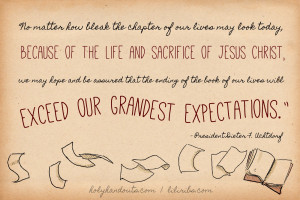 No matter how bleak the chapter of our lives may look today,
BECAUSE OF THE LIFE AND SACRIFICE OF JESUS CHRIST,
we may hope and be assured that the ending of the book of our lives will
EXCEED OUR GRANDEST EXPECTATIONS."
-President Dieter F. Uchtdorf
holyhandouts.com / ldsvibs.com